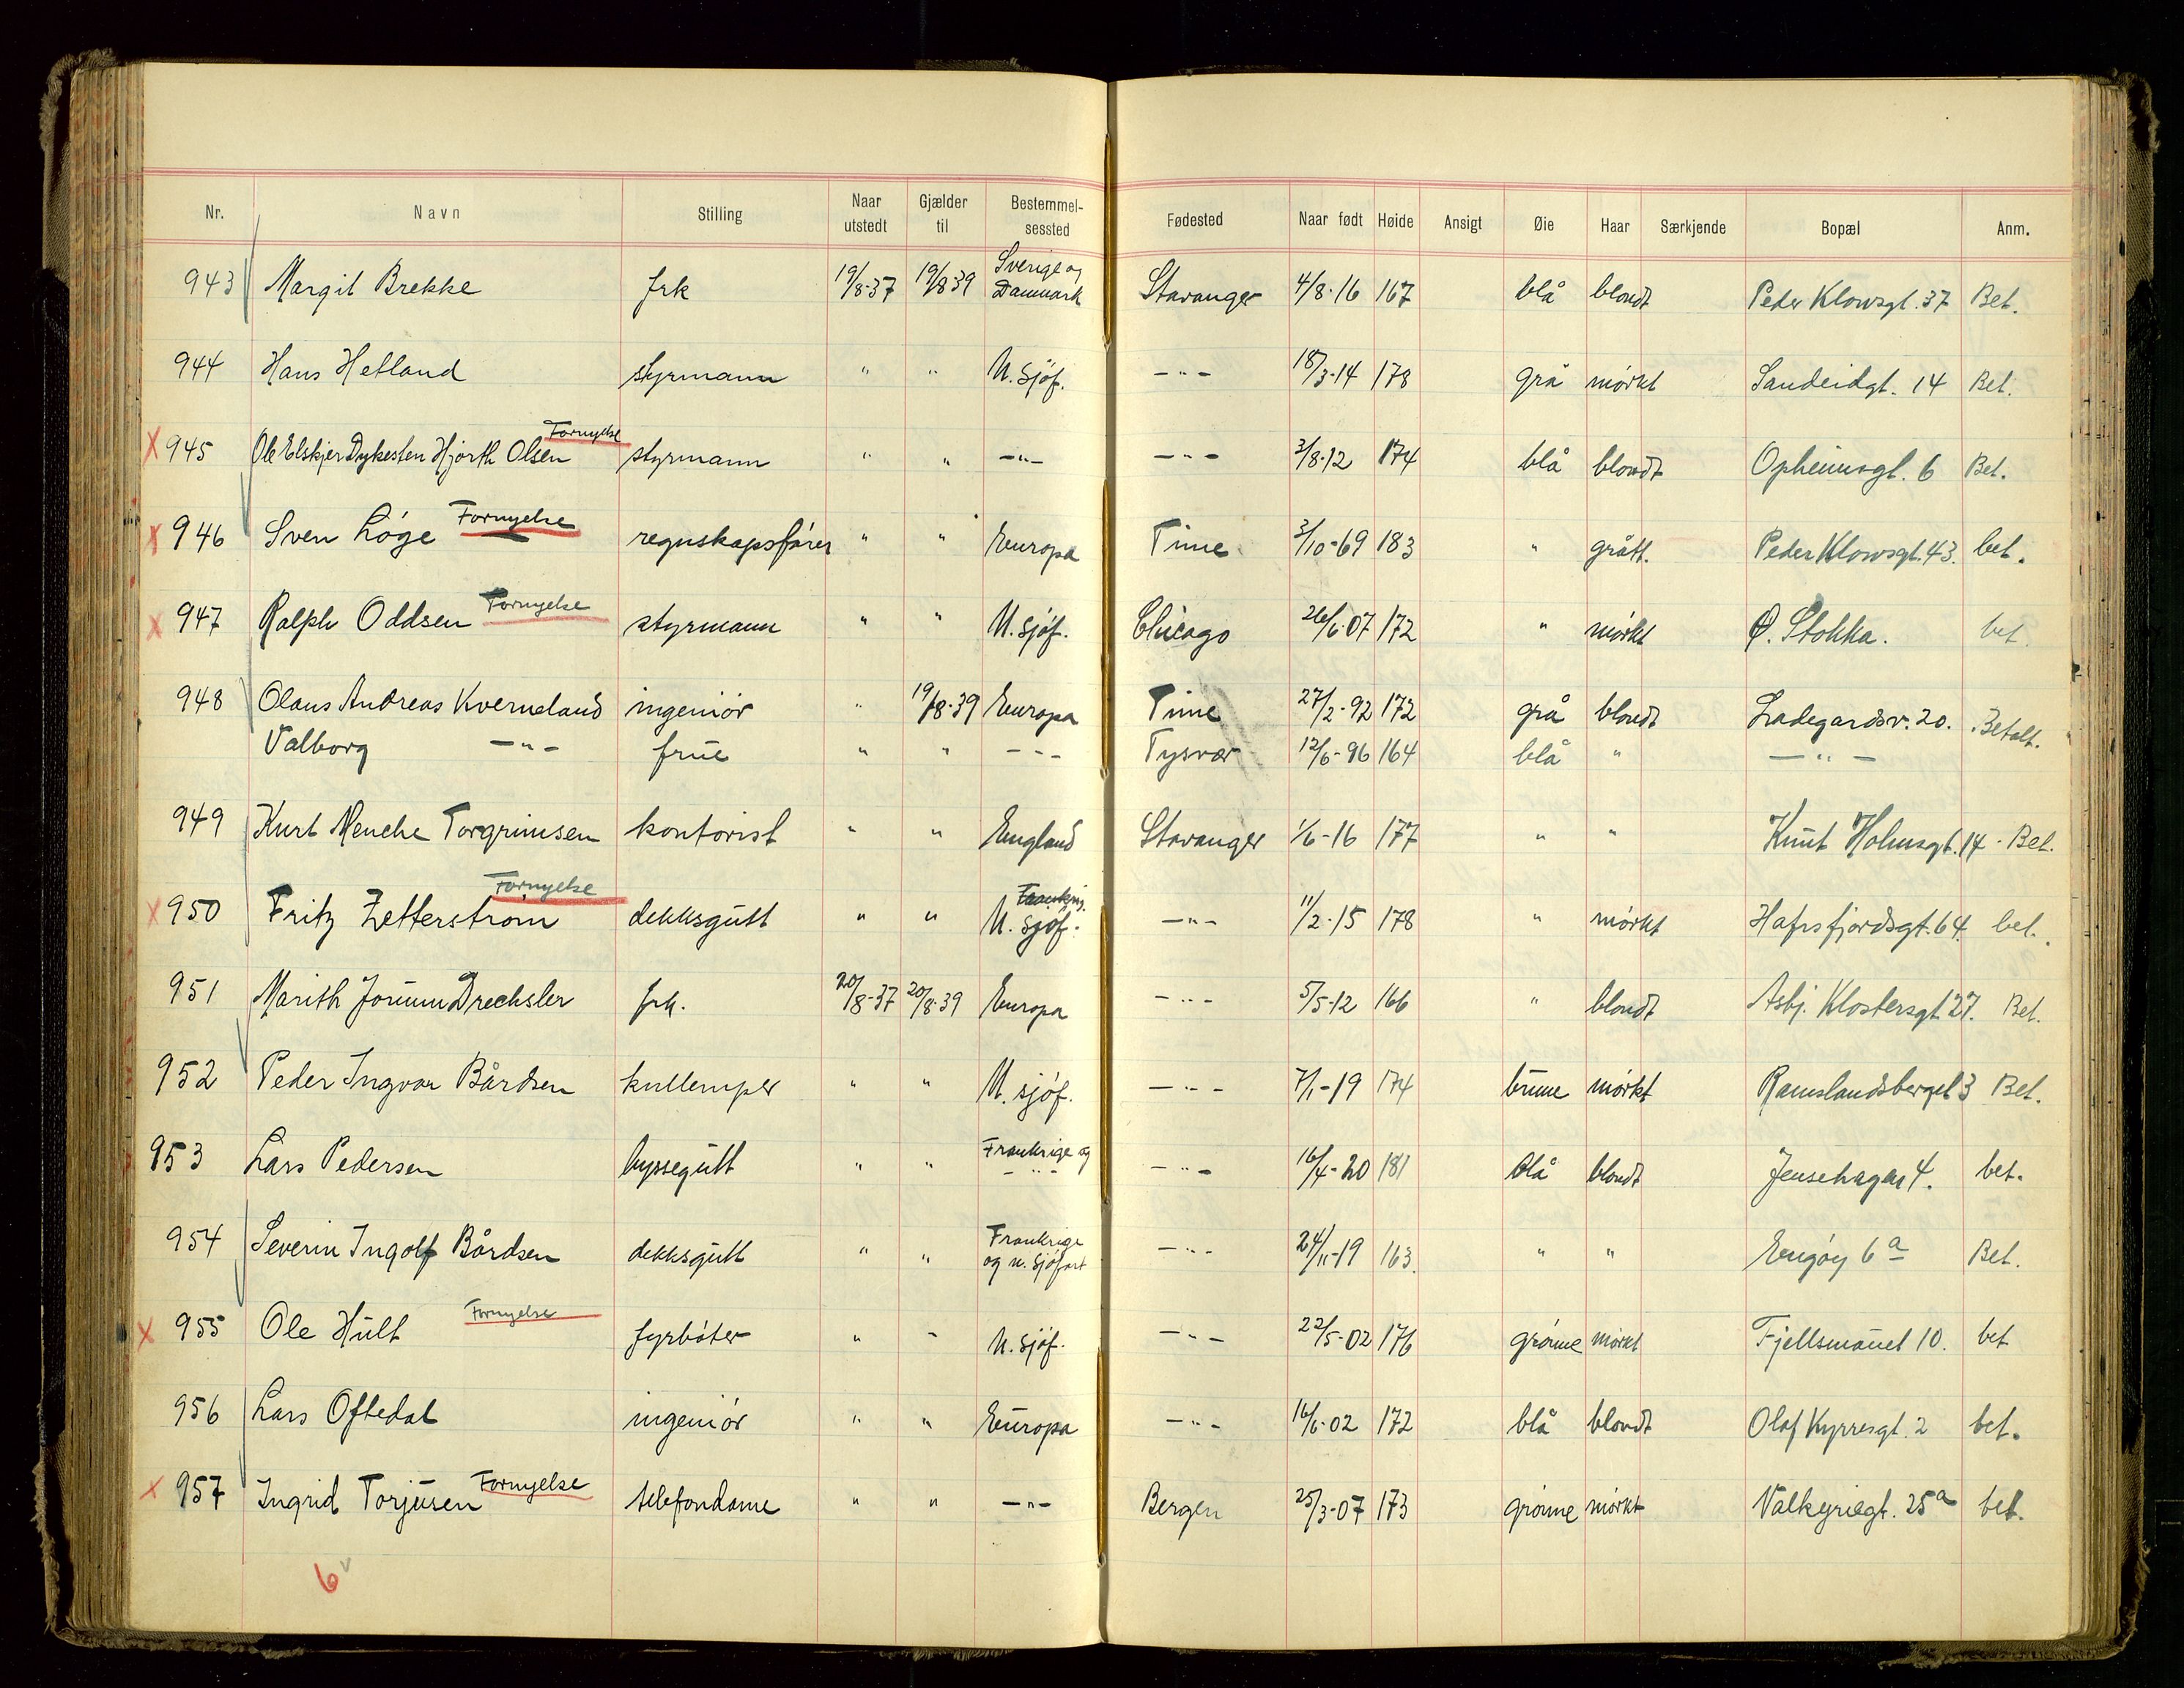 Nr. Navn Stilling Naar utstedt Gjælder til Bestemmel-sessted Fødested Naar født Høide Ansigt Øie Haar Særkjende Bopæl Anm.
943 Margit Brekke frk 19/8-37 19/8-39 Sverige og Danmark Stavanger 4/8-16 167 blå blondt Peder Klowsgt. 37 Bet.
944 Hans Hetland styrmann " " U. sjöf. -"- 18/3-14 178 grå mörkt Sandeidgt. 14 Bet.
X 945 Ole Elskjer Dykesten Hjorth Olsen Fornyelse styrmann " " -"- -"- 3/8-12 174 blå blondt Opheimsgt. 6 Bet.
X 946 Sven Löge Fornyelse regnskapsförer " " Europa Time 3/10-69 183 " grått. Peder Klowsgt. 43. bet.
X 947 Ralph Oddsen Fornyelse styrmann " " U. sjöf. Chicago 26/6-07 172 " mörkt Ø. Stokka. bet.
948 Olaus Andreas Kverneland ingeniör " 19/8-39 Europa Time 27/2-92 172 grå blondt Ladegardsv. 20. Betalt.
Valborg -"- frue " " --- Tysvær 12/6-96 164 blå " -"-
949 Kurt Menche Torgrimsen kontorist " " England Stavanger 1/6-16 177 " " Knut Holmsgt. 14 Bet.
X 950 Fritz Zetterström Fornyelse dekksgutt " " U. sjöf. -"- 11/2-15 178 " mörkt Hafrsfjordsgt. 64. bet.
951 Marith Jorunn Drechsler frk. 20/8-37 20/8-39 Europa -"- 5/5-12 166 " blondt Asbj. Klostersgt. 27. Bet.
952 Peder Ingvar Bårdsen kullemper " " U. sjöf. -"- 7/1-19 174 brune mörkt Ramslandsberget 3 Bet.
953 Lars Pedersen byssegutt " " Frankrige og -"- -"- 16/4-20 181 blå blondt Jensehagen 4. bet.
954 Severin Ingolf Bårdsen dekksgutt " " Frankrige og u. sjöfart -"- 24/11-19 163. " " Engöy 6a Bet.
X 955 Ole Hult Fornyelse fyrböter " " U. sjöf. -"- 22/5-02 176 grönne mörkt Fjellsmauet 10. bet
956 Lars Oftedal ingeniör " " Europa -"- 16/6-02 172 blå blondt Olaf Kyrresgt. 2 bet.
X 957 Ingrid Torjusen Fornyelse telefondame " " -"- Bergen 25/3-07 173 grönne mörkt Valkyriegt. 25a bet.
6 v